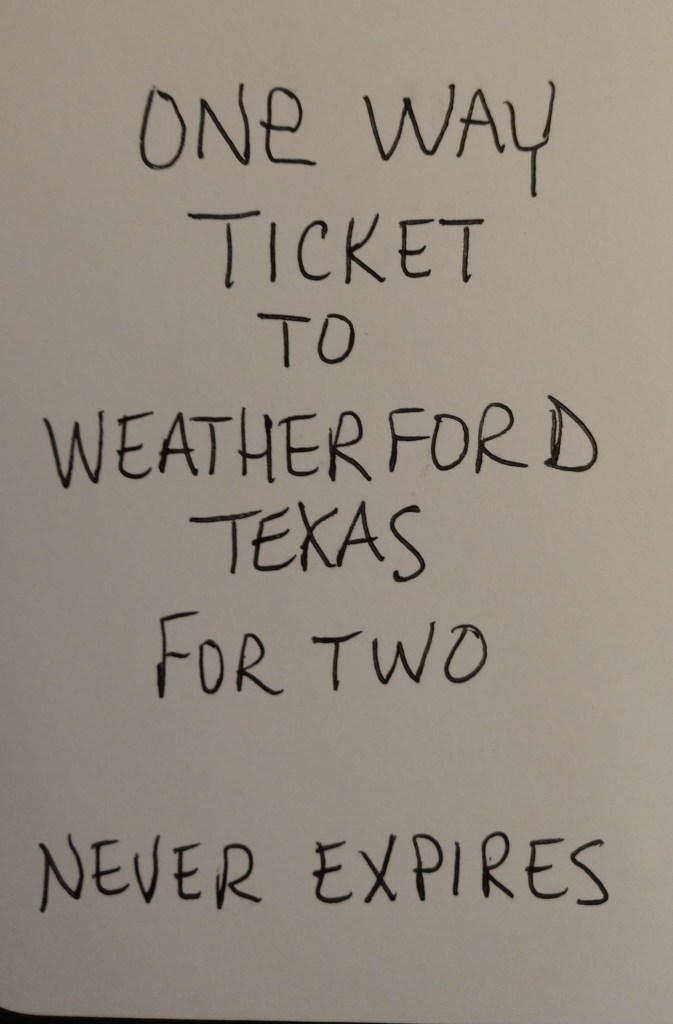 ONE WAY
TICKET
TO
WEATHERFORD
TEXAS
FOR TWO
NEVER EXPIRES